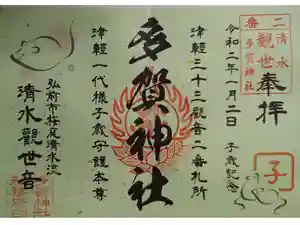 二番
清水
觀世音
多賀神社
奉拝
令和二年一月二日
子歳記念
子
津輕三十三觀音二番札所
多賀神社
津輕一代様子歳守護本尊
弘前市桜庭清水流
清水觀世音